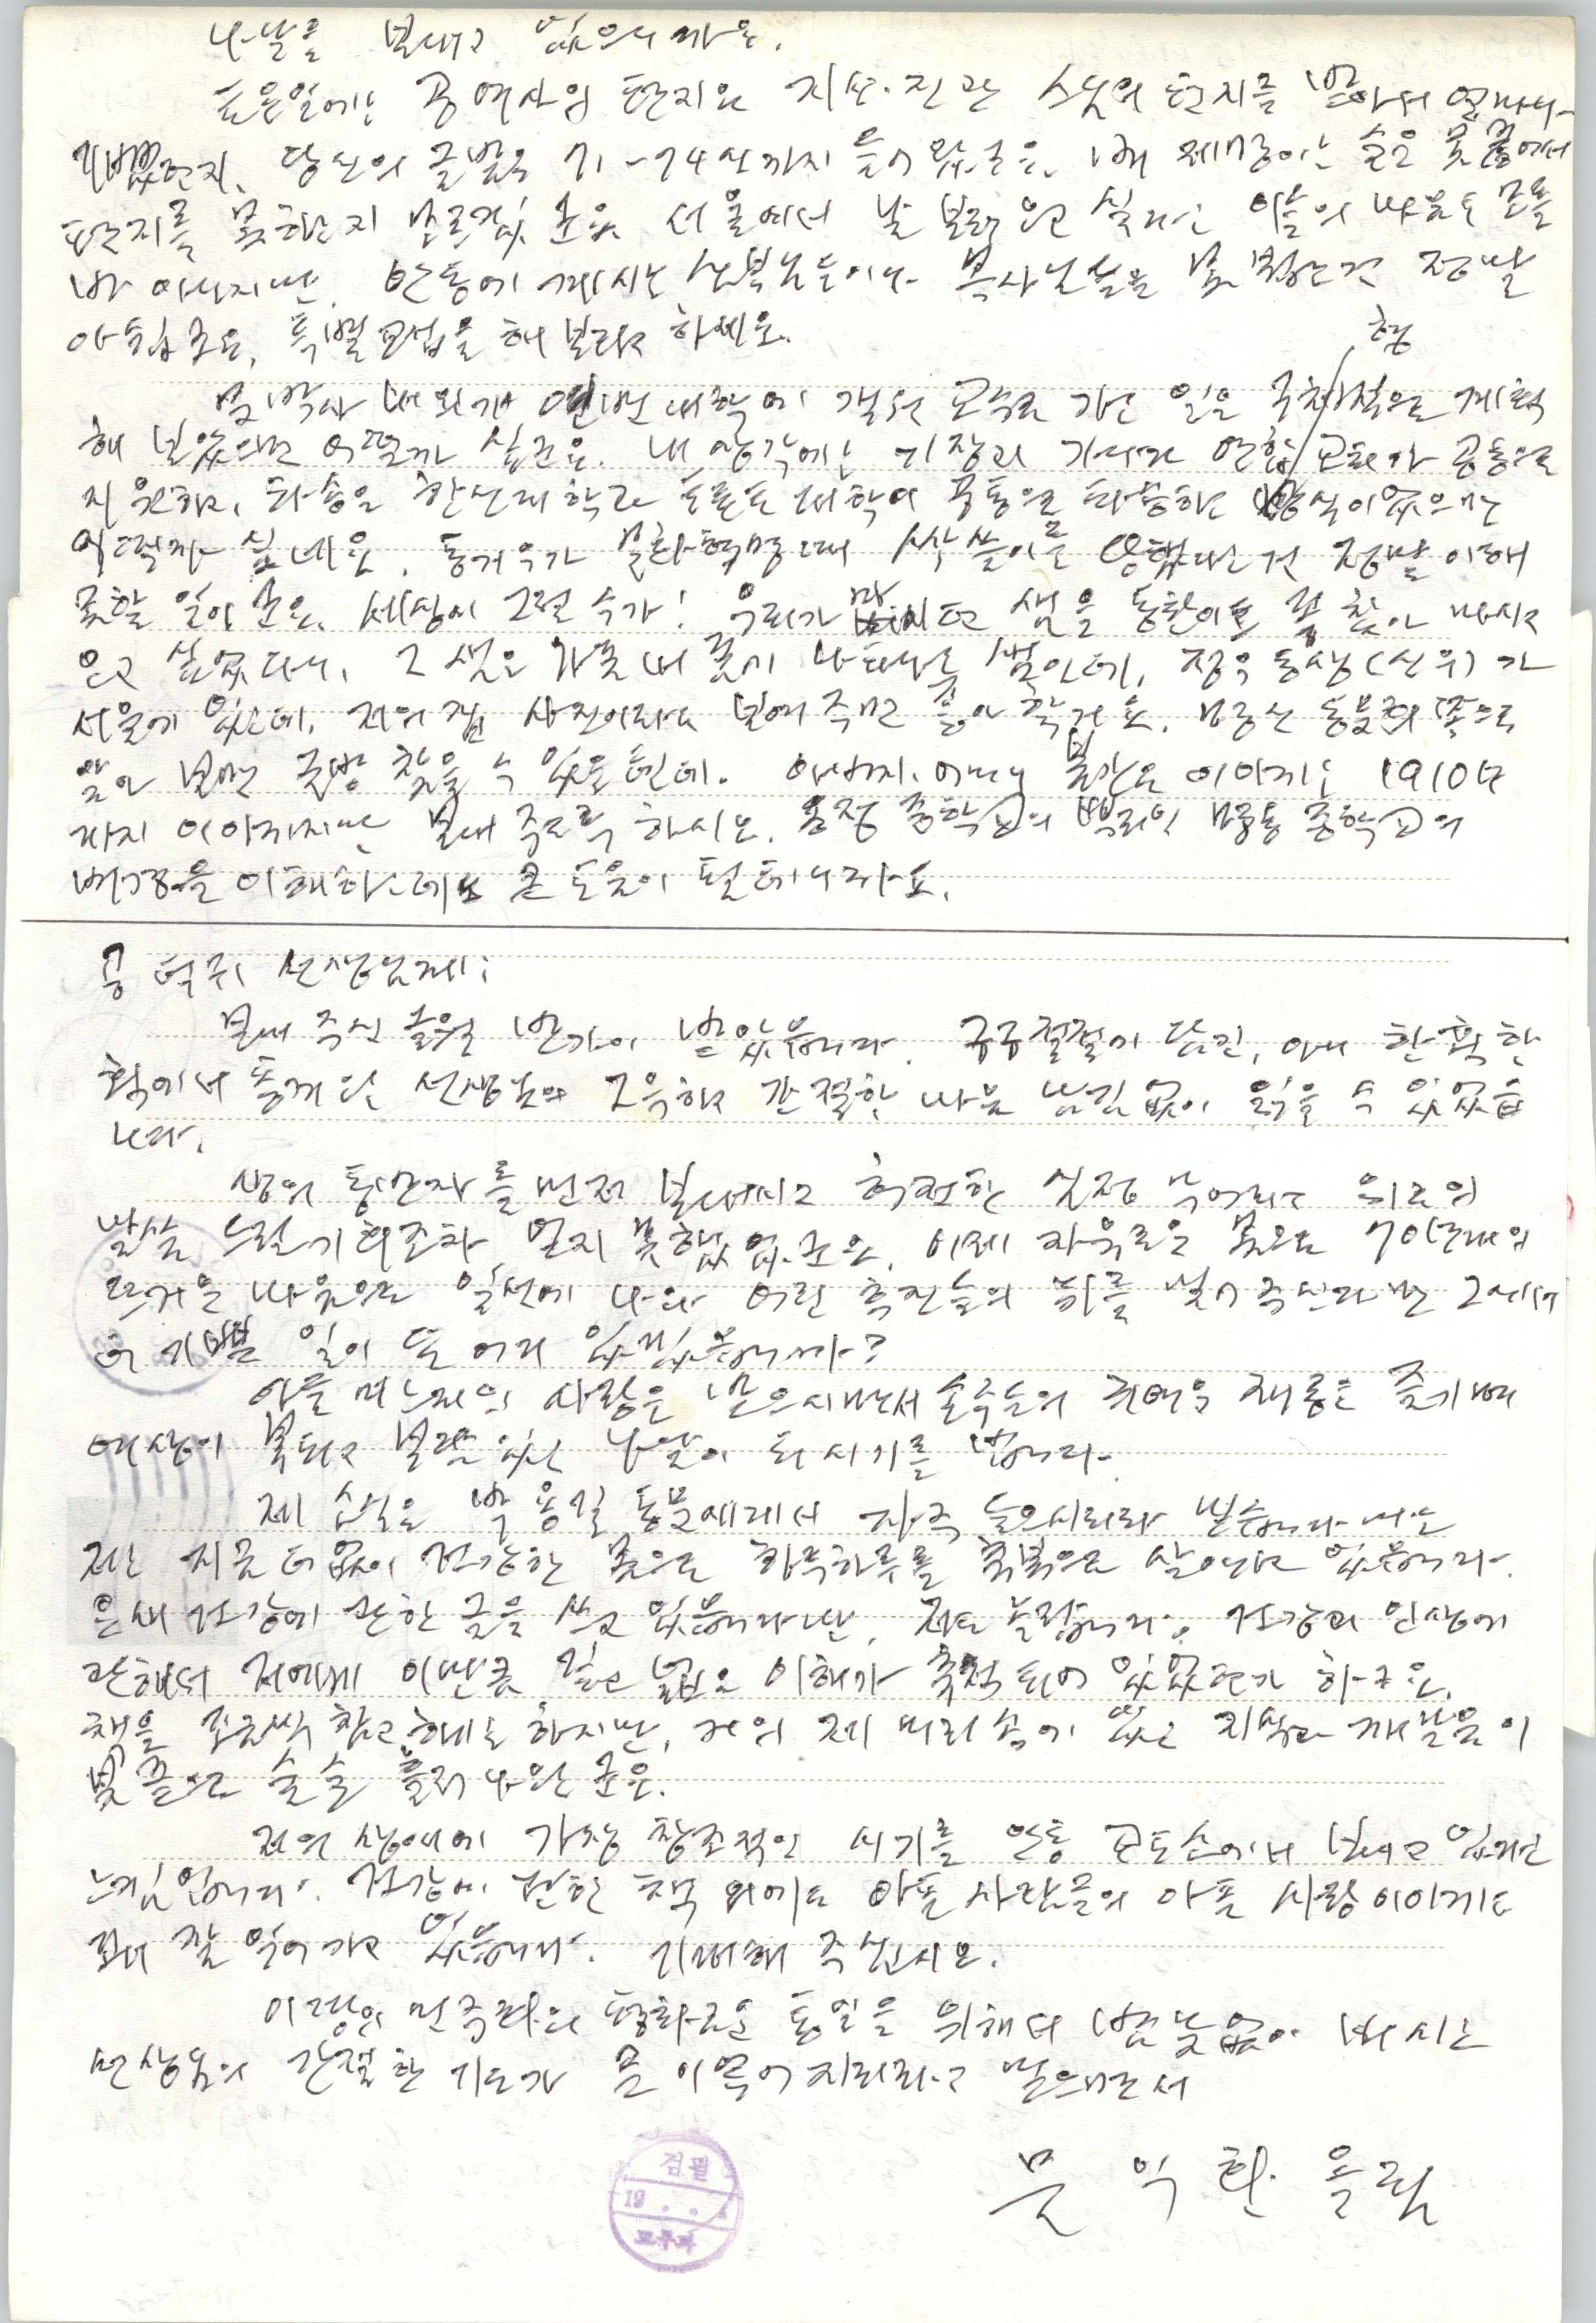 나날을 보내고 있으니까요.
토요일에는 공 여사의 편지와 지선·진관 스님의 편지를 받아서 얼마나
기뻤던지. 당신의 글발은 71-74신까지 들어왔군요. 왜 재명이는 술술 못 풀어서
편지를 못하는지 모르겠군요. 서울에서 날 보러 오고 싶다는 이들의 마음도 모를
바 아니지만, 안동에 계시는 신부님들이나 목사님들을 못 만나는 건 정말
아쉽군요. 특별 면접을 해 보라고 하세요.
문 박사 내외가 연변 대학에 객원 교수로 가는 일은 구체적으로 계획
해 보았으면 어떨까 싶군요. 내 생각에는 기장과 캐나다 연합 교회가 공동으로
지원하고, 파송은 한신대학과 토론토 대학이 공동으로 파송하는 방식이었으면
어떨까 싶네요. 동거우가 문화혁명 때 쑥밭이 를 당했다는 건 정말 이해
못할 일이군요. 세상에 그럴 수가! 우리가 마시던 샘을 동환이도 못 찾아 마시고
오고 말았다니, 그 샘은 가물 때 물이 나타나는 샘인데, 정우 동생(선우)가
서울에 있는데, 저의 집 사진이라도 보여 주면 좋아할 거요. 명동 동북쪽으로
알아 보면 금방 찾을 수 있을 텐데. 아버지, 어머니 북간도 이야기는 1910년
까지 이야기지만 보내 주도록 하시오. 용정 중학교의 뿌리인 명동 중학교의
배경을 이해하는 데도 큰 도움이 될 테니까요.
공덕귀 선생님께:
보내 주신 글월 반가이 받았습니다. 구구절절이 담긴, 아니 한 획 한
획에서 풍겨나는 선생님의 그윽하고 간절한 마음 남김 없이 읽을 수 있었습
니다.
생의 동반자를 먼저 보내시고 허전한 심정 누이라고 위로의
말씀 드릴 기회조차 얻지 못했었군요. 이제 자유로운 몸으로 70년대의
뜨거운 마음으로 일선에 나와 어린 후진들의 뒤를 밀어 주신다면 그에서
더 기쁠 일이 또 어디 있겠습니까?
아들 며느리의 사랑을 받으시면서 손주들의 귀여운 재롱을 즐기며
여생이 복되고 보람 있는 나날이 되시기를 빕니다.
제 소식은 박용길 동문에게서 자주 들으시리라 믿습니다마는
저는 지금 더없이 건강한 몸으로 하루하루를 축복으로 살아가고 있습니다.
요새 건강에 관한 글을 쓰고 있습니다마는, 저도 놀랍니다. 건강과 인생에
관해서 저에게 이만큼 깊고 넓은 이해가 축적되어 있었던가 하구요.
책을 조금씩 참고해도 하지만, 거의 제 머리 속에 있는 지식과 깨달음이
붓끝으로 술술 흘러나오는군요.
저의 생애에 가장 창조적인 시기를 안동 교도소에서 보내고 있다는
느낌입니다. 건강에 관한 책 외에도 아픈 사람들의 아픈 사랑 이야기도
퍽 잘 익어가고 있습니다. 기대해 주십시오.
이 땅의 민주화와 평화로운 통일을 위해서 밤낮없이 비시는
선생님의 간절한 기도가 곧 이루어지리라고 믿으면서
문 익 환 올림
검열
19 . . .
교무과